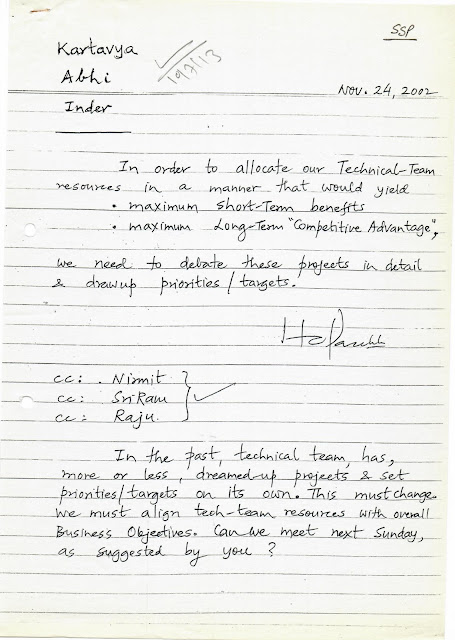 SSP
Kartavya
Abhi
Inder
19/7/13
Nov. 24, 2002
In order to allocate our Technical-Team
resources in a manner that would yield
• maximum Short-Term benefits
• maximum Long-Term "Competitive Advantage",
we need to debate these projects in detail
& drawup priorities/targets.
cc: . Nirmit
cc: SriRam
cc: Raju.
In the past, technical team, has,
more or less, dreamed-up projects & set
priorities/targets on its own. This must change.
We must align tech-team resources with overall
Business Objectives. Can we meet next Sunday,
as suggested by you ?